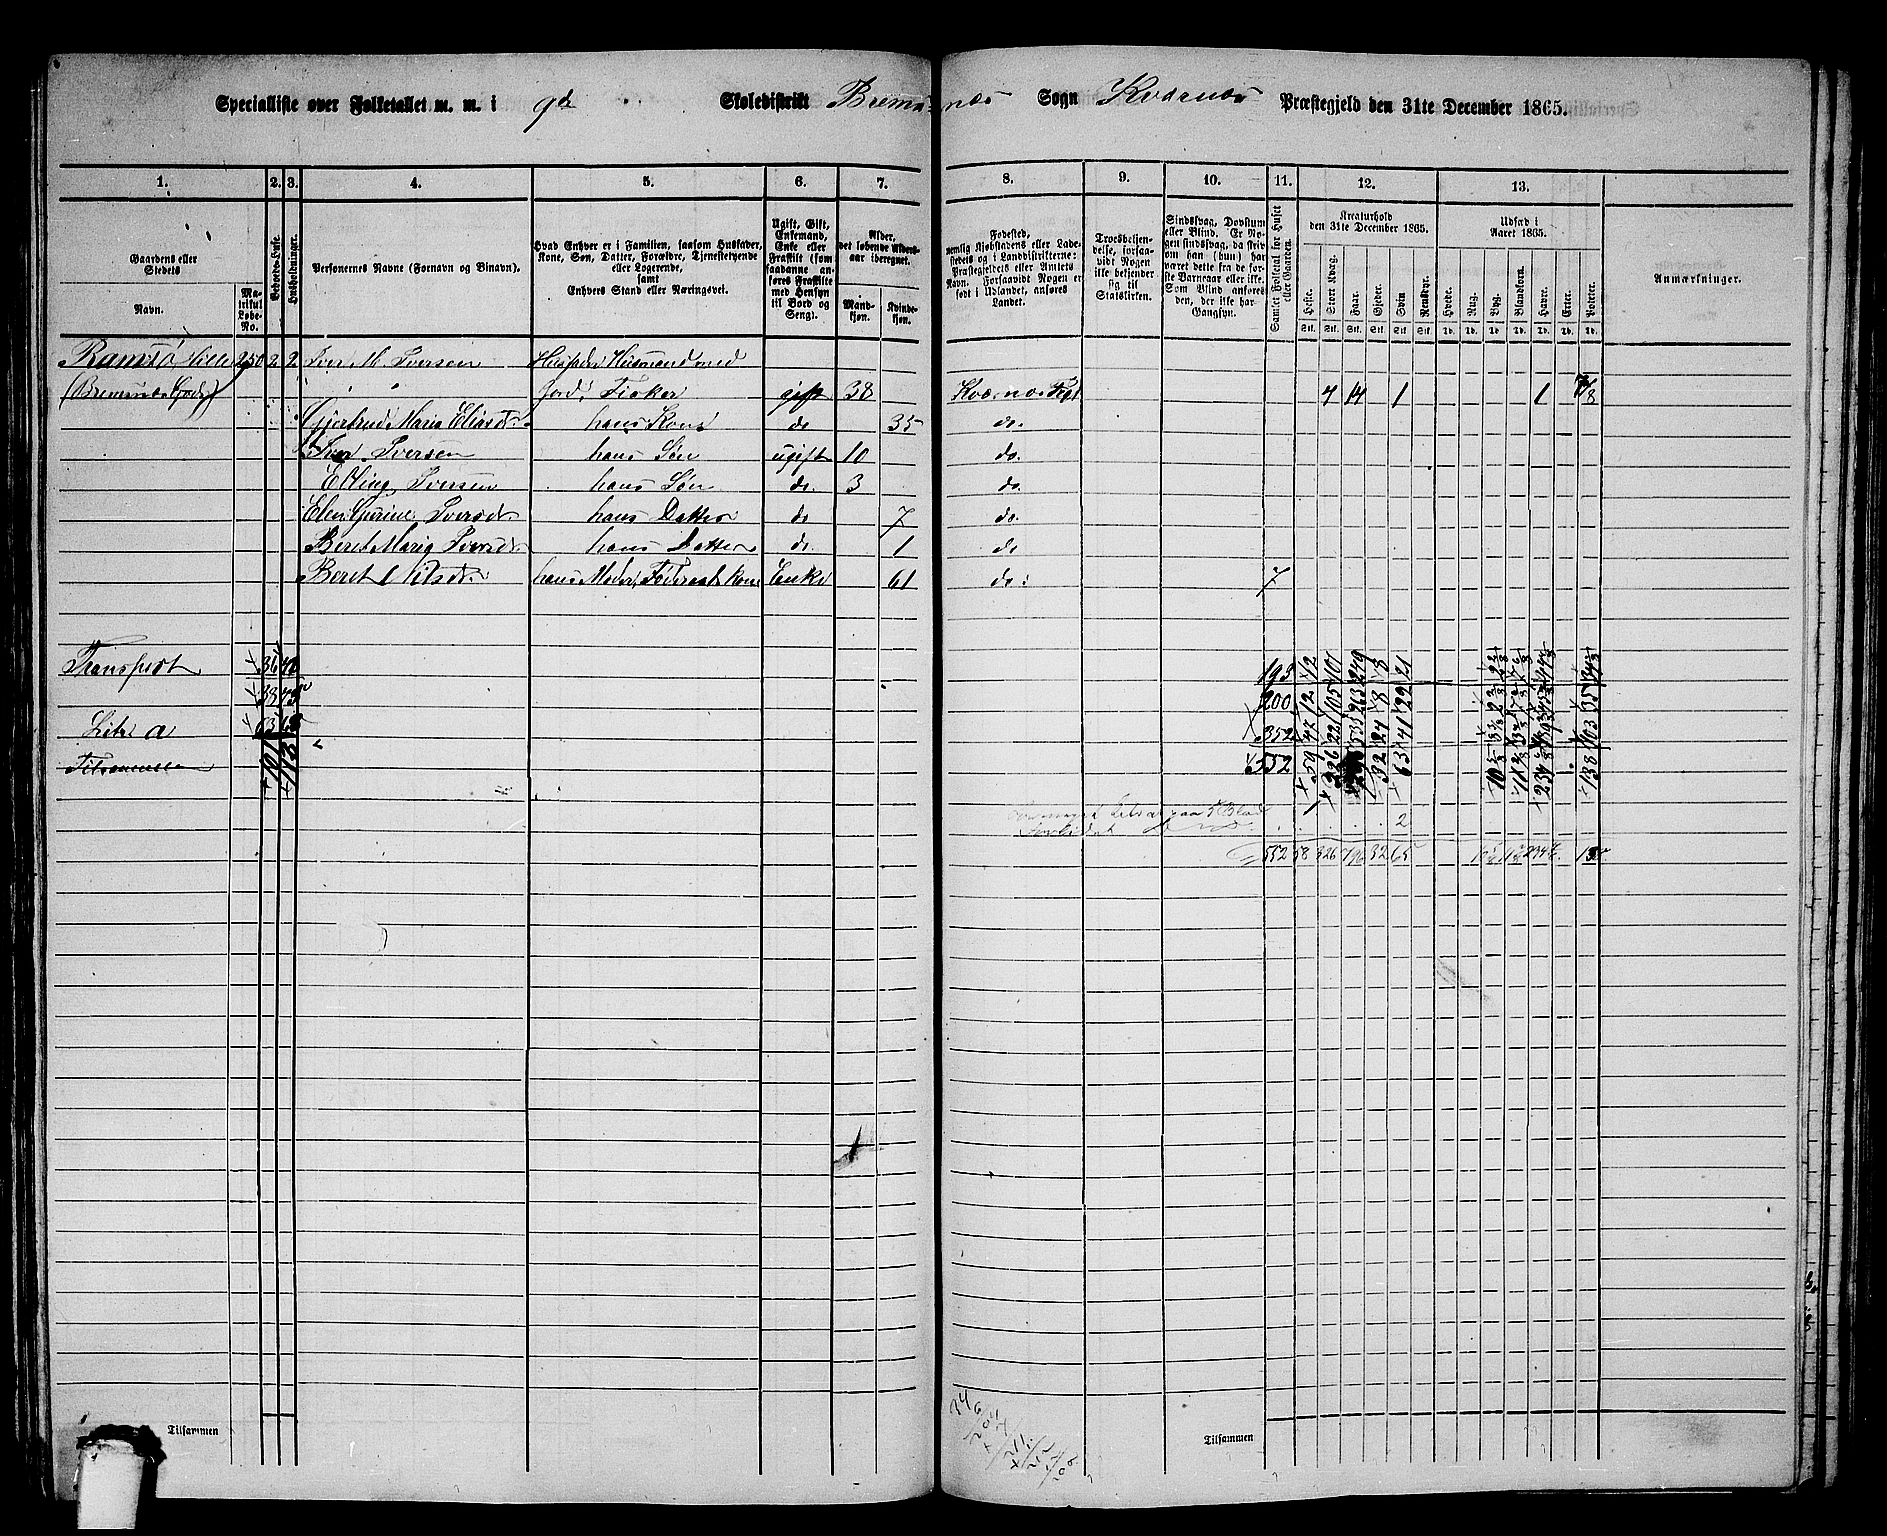 Specialliste over Folketallet m. m. i 9de Skoledistrikt Bremsnæs Sogn Kværnæs Præstegjeld den 31te December 1865.
1. 2. 3. 4. 5. 6. 7. 8. 9. 10. 11. 12. 13.
Gaardens eller Stedets
Navn.
Matrikul Løbe-No.
Beboede Huse.
Husholdninger.
Personernes Navne (Fornavn og Binavn).
Hvad Enhver er i Familien, saasom Husfader, Kone, Søn, Datter, Forældre, Tjenestetyende eller Logerende,
samt
Enhvers Stand eller Næringsvei.
Ugift, Gift, Enkemand, Enke eller Fraskilt (som saadanne anføres Fraskilte med Hensyn til Bord og Seng).
Alder, det løbende Alders-aar iberegnet.
Mandkjøn.
Kvindekjøn.
Fødested, nemlig Kjøbstadens eller Ladestedets og i Landdistrikterne: Præstegjeldets eller Amtets Navn. Forsaavidt Nogen er født i Udlandet, anføres Landet.
Troesbekjendelse, forsaavidt Nogen ikke bekjender sig til Statskirken.
Sindssvag, Døvstum eller Blind. Er Nogen sindssvag, da skrives om han (hun) har været dette fra de første Barneaar eller ikke. Som Blind anføres den, der ikke har Gangsyn.
Samlet Folketal for Huset eller Gaarden.
Kreaturhold den 31te December 1865.
Heste. Stort Kvæg. Faar. Gjeder. Svin Rensdyr.
Udsæd i Aaret 1865.
Hvede. Rug. Byg. Blandkorn. Havre. Erter. Poteter.
Stk. Stk. Stk. Stk. Stk. Stk. Td. Td. Td. Td. Td. Td. Td.
Anmærkninger.
Ramsø Lille 250 2 2 Iver M. Iversen Husfader Husmand med
(Bremsnæs Gods) Jord, Fisker gift 38 Kværnæs Prgjl 4 14 1 1
Gjertrud Maria Eliasdt. hans Kone do 35 do.
Iver Iversen hans Søn ugift 10 do.
Elling Iversen hans Søn do. 3 do.
Elen Gurine Iversdt. hans Datter do 7 do.
Beret Maria Iversdt. hans Datter do. 1 do
Beret Nilsdt. hans Moder, Føderaadskone Enke 61 do. 7
Transport 36 193 12 101 249 8 21
38 200 12 105 263 8 22
Litr a 63 68 352 47 221 535 24 41
Tilsammen 101 113 552 59 326 32 63 138
2
552 58 326 796 32 65
Tilsammen
Tilsammen